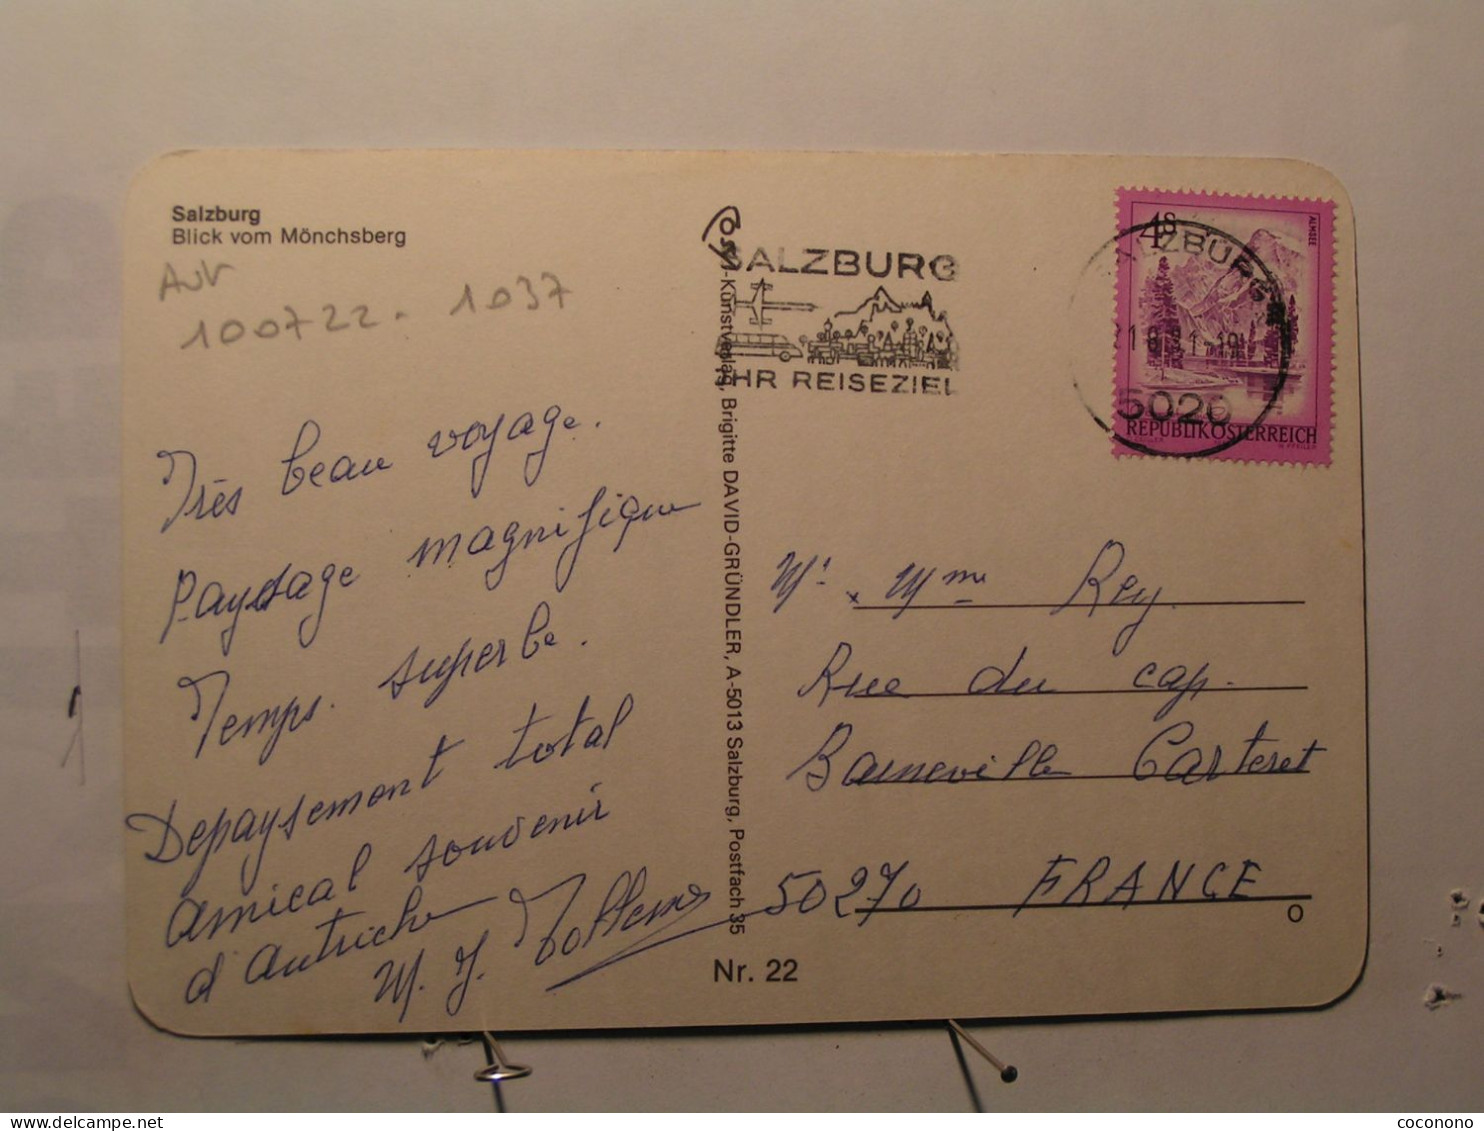 Salzburg
Blick vom Mönchsberg
Aut
100722 - 1037
Très beau voyage.
Paysage magnifique
Temps superbe.
Depaysement total
amical souvenir
d'Autriche
M. J.
SALZBURG
IHR REISEZIEL
-Kunstverlag, Brigitte DAVID-GRÜNDLER, A-5013 Salzburg, Postfach 35
Nr. 22
4S
ALMSEE
REPUBLIK ÖSTERREICH
SALZBURG
5020
Mr Mme Rey.
Rue du cap.
Barneville Carteret
50270 FRANCE
O
coconono